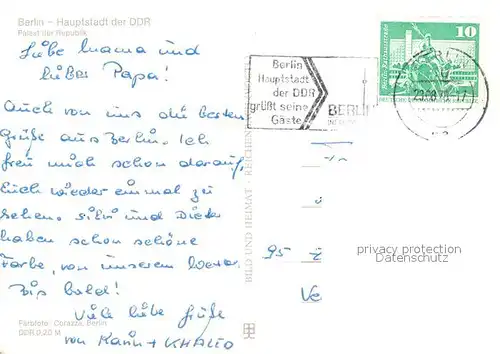 Berlin – Hauptstadt der DDR
Palast der Republik
Liebe Mama und
lieber Papa!
Auch von uns die besten
Grüße aus Berlin. Ich
freu mich schon darauf,
Euch wieder einmal zu
sehen. Silvi und Dieter
haben schon schöne
Farbe, von unserem Wetter.
Bis bald!
Viele liebe Grüße
von Karin + KHALED
Farbfoto: Corazza, Berlin
DDR 0,20 M
BILD UND HEIMAT · REICHEN
Berlin
Hauptstadt
der DDR
grüßt seine
Gäste
BERLIN
10
95
privacy protection
Datenschutz